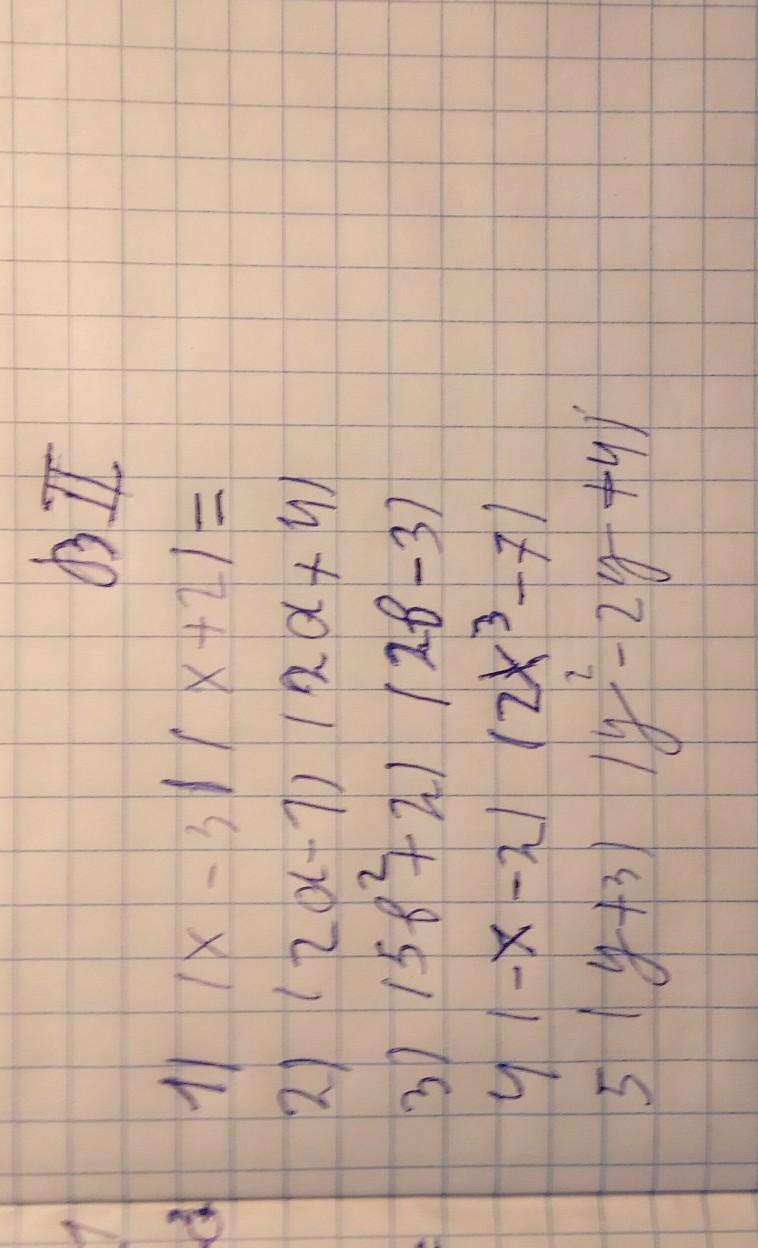 В II
1) (x-3)(x+2)=
2) (2a-1)(2a+4)
3) (5b²+2)(2b-3)
4 (-x-2)(2x³-7)
5 (y+3)(y²-2y+4)